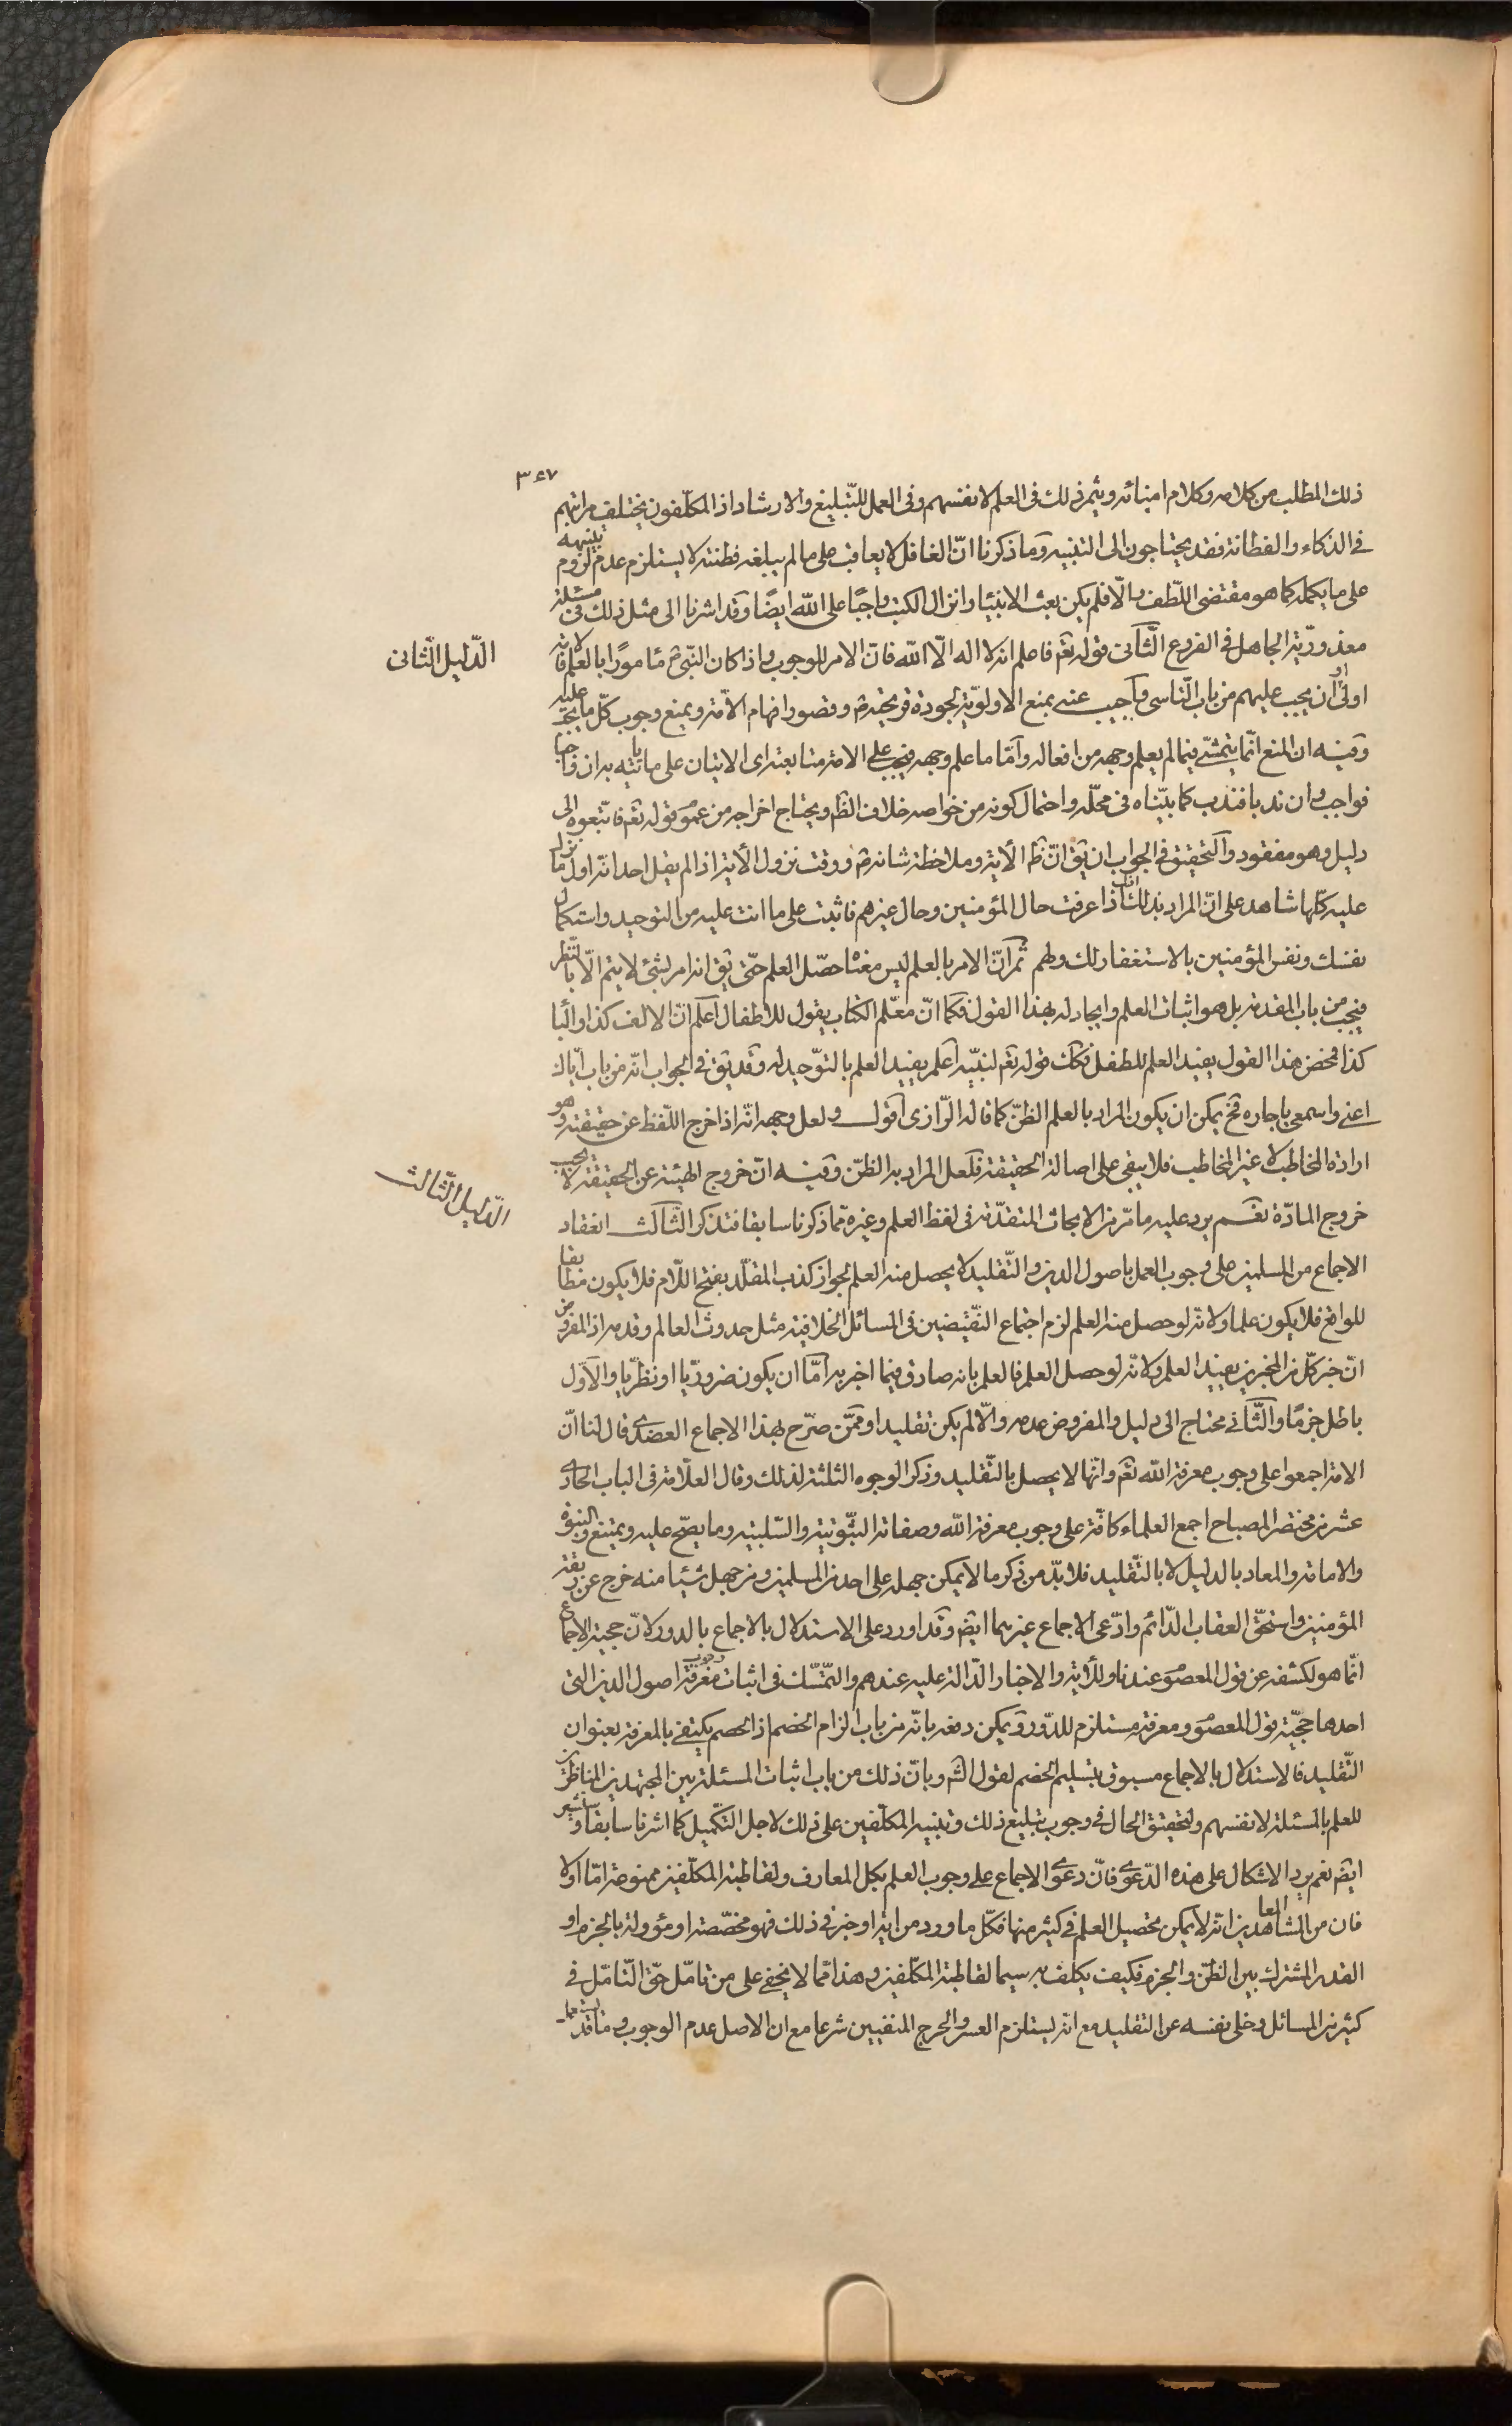 ٣٤٧
ذلك المطلب من كلامه وكلام امنائه ويثمر ذلك فى العلم لانفسهم وفى العمل للتّبليغ والارشاد اذ المكلّفون يختلف مراتبهم
في الذكاء والفطانة فقد يحتاجون الى التنبيه وما ذكرنا انّ الغافل لا يعاقب على ما لم يبلغه فطنته لا يستلزم عدم لزوم تنبيهه
على ما يكمله كما هو مقتضى اللّطف والّا فلم يكن بعث الانبياء وانزال الكتب واجبًا على اللّه ايضًا وقد اشرنا الى مثل ذلك فى مسئلة
معذوريّة الجاهل في الفروع الثّانى قوله تعم فاعلم انه لا اله الّا اللّه فان الامر للوجوب واذا كان النّبيّ ص مامورًا بالعلم فالامّة
الدّليل الثّانى
اولى او ان يجب عليهم من باب التّاسى واجيب عنه بمنع الاولويّة لجودة قريحته ص وقصور افهام الامّة وبمنع وجوب كلّ ما يجب عليه
وفيه ان المنع انّما يتمشّى فيما لم يعلم وجهه من افعاله وامّا ما علم وجهه فيجب على الامة متابعته اى الاتيان على ما ياتيه به ان واجبا
فواجب وان ندبا فندب كما بيّناه فى محلّه واحتمال كونه من خواصه خلاف الظ ويحتاج اخراجه من عموم قوله تعم فاتّبعوه الى
دليل وهو مفقود والتحقيق فى الجواب ان يق انّ ظ الأية وملاحظة شانه ص ووقت نزول الأية اذ لم يقل احد انّه اول ما نزل
عليه كلّها شاهد على انّ المراد بذلك انك اذا عرفت حال المؤمنين وحال غيرهم فاثبت على ما انت عليه من التوحيد واستكمال
نفسك ونفس المؤمنين بالاستغفار لك ولهم ثم انّ الامر بالعلم ليس معناه حصّل العلم حتّى يق انه امر بشئ لا يتم الّا بالنّظر
فيجب من باب المقدمة بل هو اثبات العلم وايجاد له بهذا القول فكما انّ معلّم الكتاب يقول للاطفال اعلم انّ الالف كذا والبا
كذا فمحض هذا القول يفيد العلم للطفل فكك قوله تعم لنبيّه اعلم يفيد العلم بالتوّحيد له وقد يق فى الجواب انّه من باب ايّاك
اعنى واسمعى يا جاره فح يمكن ان يكون المراد بالعلم الظنّ كما قاله الرّازى اقول ولعل وجهه انّه اذا خرج اللّفظ عن حقيقته وهو
ارادة المخاطب لا غير المخاطب فلا يبقى على اصالة الحقيقة فلعل المراد به الظنّ وفيه انّ خروج الهيئة عن الحقيقة لا يوجب
خروج المادّة نعم يرد عليه ما مرّ من الابحاث المتقدّمة فى لفظ العلم وغيره ممّا ذكرنا سابقا فتذكر الثّالث انعقاد
الدّليل الثّالث
الاجماع من المسلمين على وجوب العمل باصول الدين والتّقليد لا يحصل منه العلم لجواز كذب المقلّد بفتح اللّام فلا يكون مطابقا
للواقع فلا يكون علما ولانّه لو حصل منه العلم لزم اجتماع النّقيضين فى المسائل الخلافية مثل حدوث العالم وقدمه اذ المفروض
انّ خبر كلّ من المخبرين يفيد العلم ولانّه لو حصل العلم فالعلم بانه صادق فيما اخبر به امّا ان يكون ضروريّا او نظريّا والاّول
باطل جزمًا والثّانى محتاج الى دليل والمفروض عدمه والّا لم يكن تقليدا وممّن صرّح بهذا الاجماع العضدى قال لنا انّ
الامة اجمعوا على وجوب معرفة اللّه تعم وانّها لا يحصل بالتّقليد وذكر الوجوه الثلثة لذلك وقال العلّامة فى الباب الحادى
عشر من مختصر المصباح اجمع العلماء كافّة على وجوب معرفة اللّه وصفاته الثّبوتيّة والسّلبيّة وما يصحّ عليه ويمتنع والنّبوة
والامامة والمعاد بالدليل لا بالتّقليد فلا بدّ من ذكر ما لا يمكن جهله على احد من المسلمين ومن جهل شيئا منه خرج عن ربقة
المؤمنين واستحقّ العقاب الدّائم وادّعى الاجماع غيرهما ايض وقد اورد على الاستدلال بالاجماع بالدور لانّ حجية الاجماع
انّما هو لكشفه عن قول المعصوم عندنا وللأية والاخبار الدّالة عليه عندهم والتمّسّك فى اثبات وجوب معرفة اصول الدين التى
احدها حجيّة قول المعصوم ومعرفته مستلزم للدّور ويمكن دفعه بانّه من باب الزام الخصم اذ الخصم يكتفى بالمعرفة بعنوان
التّقليد فالاستدلال بالاجماع مسبوق بتسليم الخصم لقول الش وبانّ ذلك من باب اثبات المسئلة بين المجتهدين المناظرين
للعلم بالمسئلة لانفسهم ولتحقيق الحال فى وجوب تبليغ ذلك وتنبيه المكلّفين على ذلك لاجل التّكميل كما اشرنا سابقا وسنشير
ايض نعم يرد الاشكال على هذه الدّعوى فانّ دعوى الاجماع على وجوب العلم بكل المعارف ولقاطبة المكلّفين ممنوعة امّا اولا
فان من المشاهد العا‌ ين انّه لا يمكن تحصيل العلم فى كثير منها فكلّ ما ورد من اية او خبر فى ذلك فهو مخصّصة او مؤولة بالجزم او
القدر المشترك بين الظنّ والجزم فكيف يكلف به سيما لقاطبة المكلّفين وهذا ممّا لا يخفى على من تامّل حقّ التّامّل فى
كثير من المسائل وخلى نفسه عن التقليد مع انه يستلزم العسر والحرج المنفيين شرعا مع ان الاصل عدم الوجوب وما قد